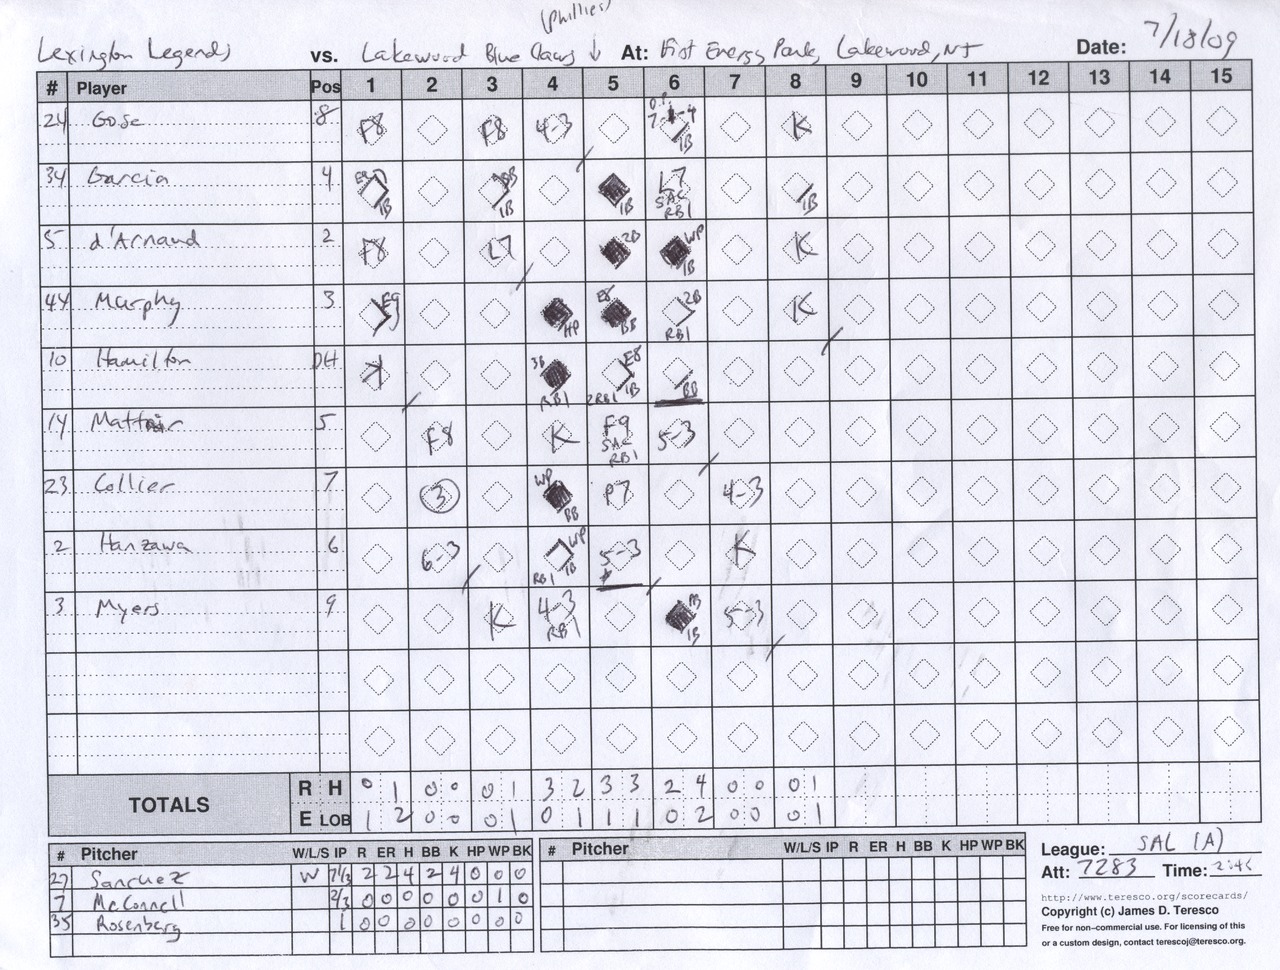 (Phillies)
Lexington Legends vs. Lakewood Blue Claws ↓ At: First Energy Park, Lakewood, NJ Date: 7/18/09
# Player Pos 1 2 3 4 5 6 7 8 9 10 11 12 13 14 15
24 Gose 8 F8 F8 4-3 1B K
34 Garcia 4 1B 1B 1B L7 SAC RBI 1B
5 d'Arnaud 2 F8 L7 2B WP 1B K
44 Murphy 3 E9 HP E8 BB 2B RBI K
10 Hamilton DH K 3B RBI E8 1B 2RBI BB
14 Mattair 5 F8 K F9 SAC RBI 5-3
23 Collier 7 3 WP BB P7 4-3
2 Hanzawa 6 6-3 WP 1B RBI 5-3 K
3 Myers 9 K 4-3 RBI 1B 5-3
TOTALS
R H 0 1 0 0 0 1 3 2 3 3 2 4 0 0 0 1
E LOB 1 2 0 0 0 1 0 1 1 1 0 2 0 0 0 1
# Pitcher W/L/S IP R ER H BB K HP WP BK # Pitcher W/L/S IP R ER H BB K HP WP BK
27 Sanchez W 7 1/3 2 2 4 2 4 0 0 0
7 McConnell 2/3 0 0 0 0 0 0 1 0
35 Rosenberg 1 0 0 0 0 0 0 0 0
League: SAL (A)
Att: 7283 Time: 2:46
http://www.teresco.org/scorecards/
Copyright (c) James D. Teresco
Free for non-commercial use. For licensing of this
or a custom design, contact terescoj@teresco.org.